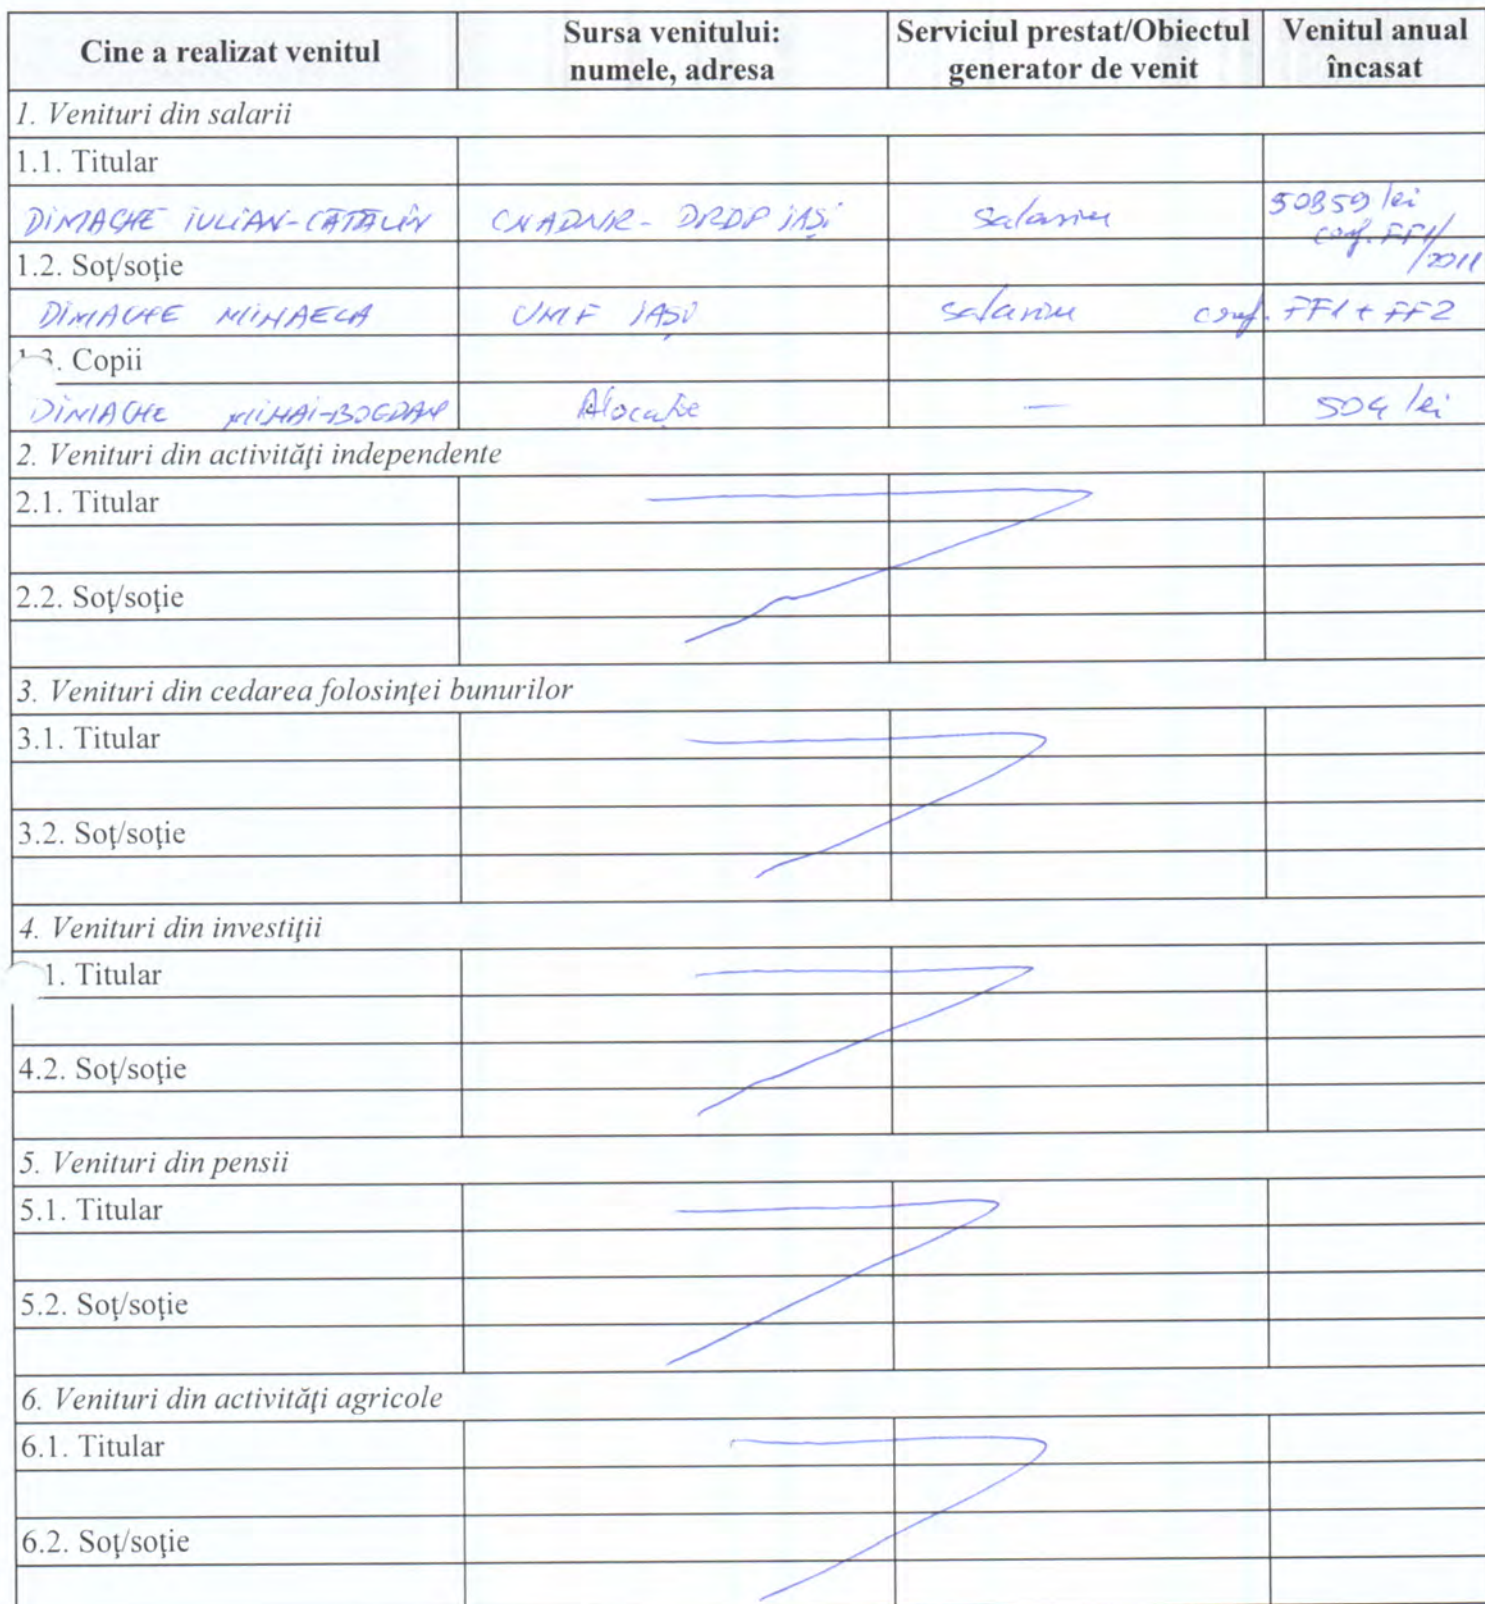 Cine a realizat venitul
Sursa venitului: numele, adresa
Serviciul prestat/Obiectul generator de venit
Venitul anual încasat
1. Venituri din salarii
1.1. Titular
DIMACHE IULIAN-CĂTĂLIN CNADNR - DRDP IAȘI salariu 50859 lei
conf. FF1/2011
1.2. Soţ/soţie
DIMACHE MIHAELA UMF IAȘI salariu conf. FF1 + FF2
. Copii
DIMACHE MIHAI-BOGDAN Alocație — 504 lei
2. Venituri din activităţi independente
2.1. Titular
2.2. Soţ/soţie
3. Venituri din cedarea folosinţei bunurilor
3.1. Titular
3.2. Soţ/soţie
4. Venituri din investiţii
1. Titular
4.2. Soţ/soţie
5. Venituri din pensii
5.1. Titular
5.2. Soţ/soţie
6. Venituri din activităţi agricole
6.1. Titular
6.2. Soţ/soţie